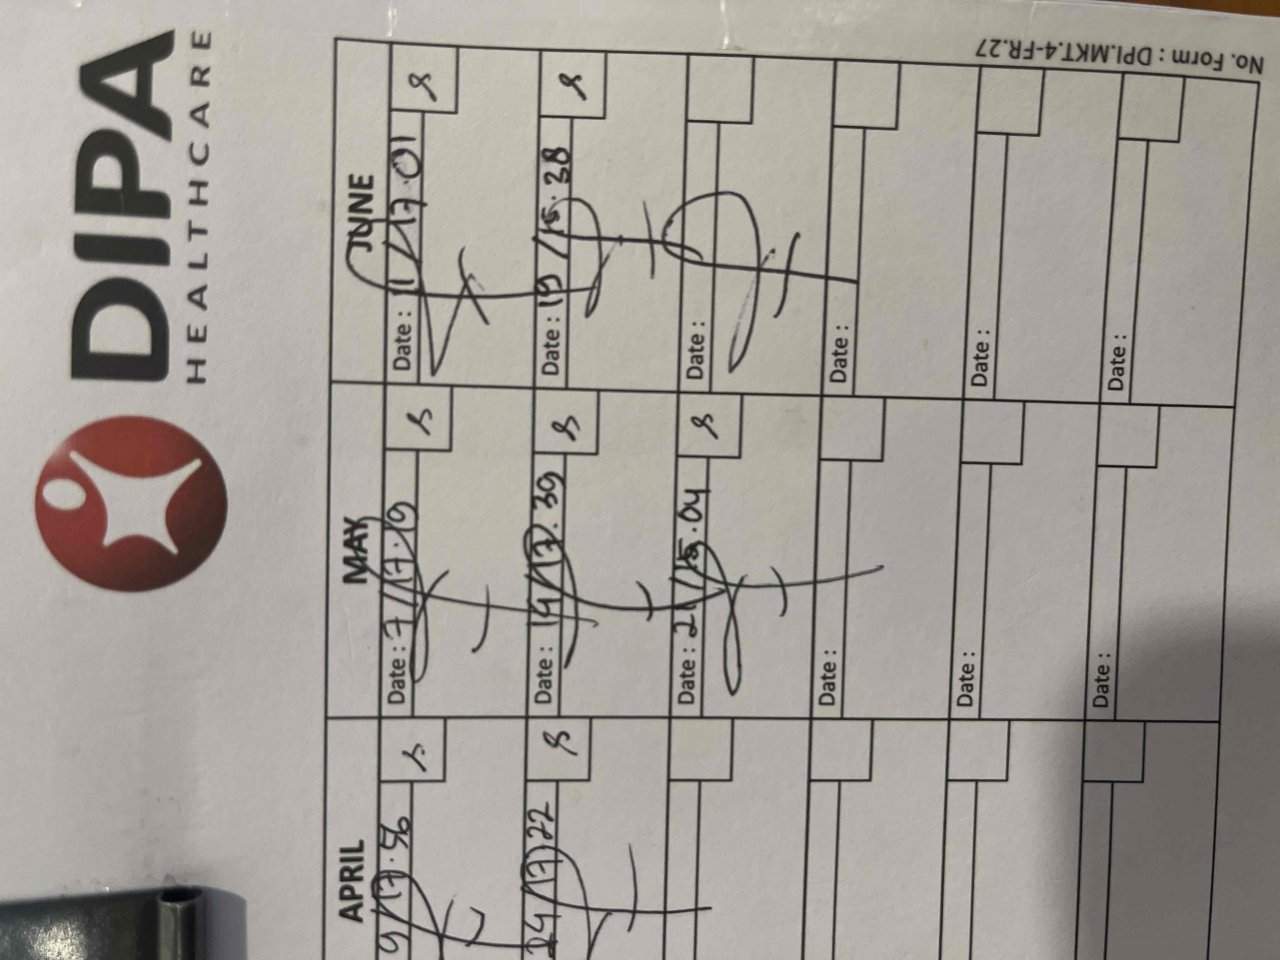 DIPA
HEALTHCARE
No. Form : DPI.MKT.4-FR.27
APRIL
9/17.56 S
24/17.22 S
MAY
Date : 7/17.19 S
Date : 14/17.39 S
Date : 21/15.04 S
Date :
Date :
Date :
JUNE
Date : 11/17.01 S
Date : 19/15.38 S
Date :
Date :
Date :
Date :